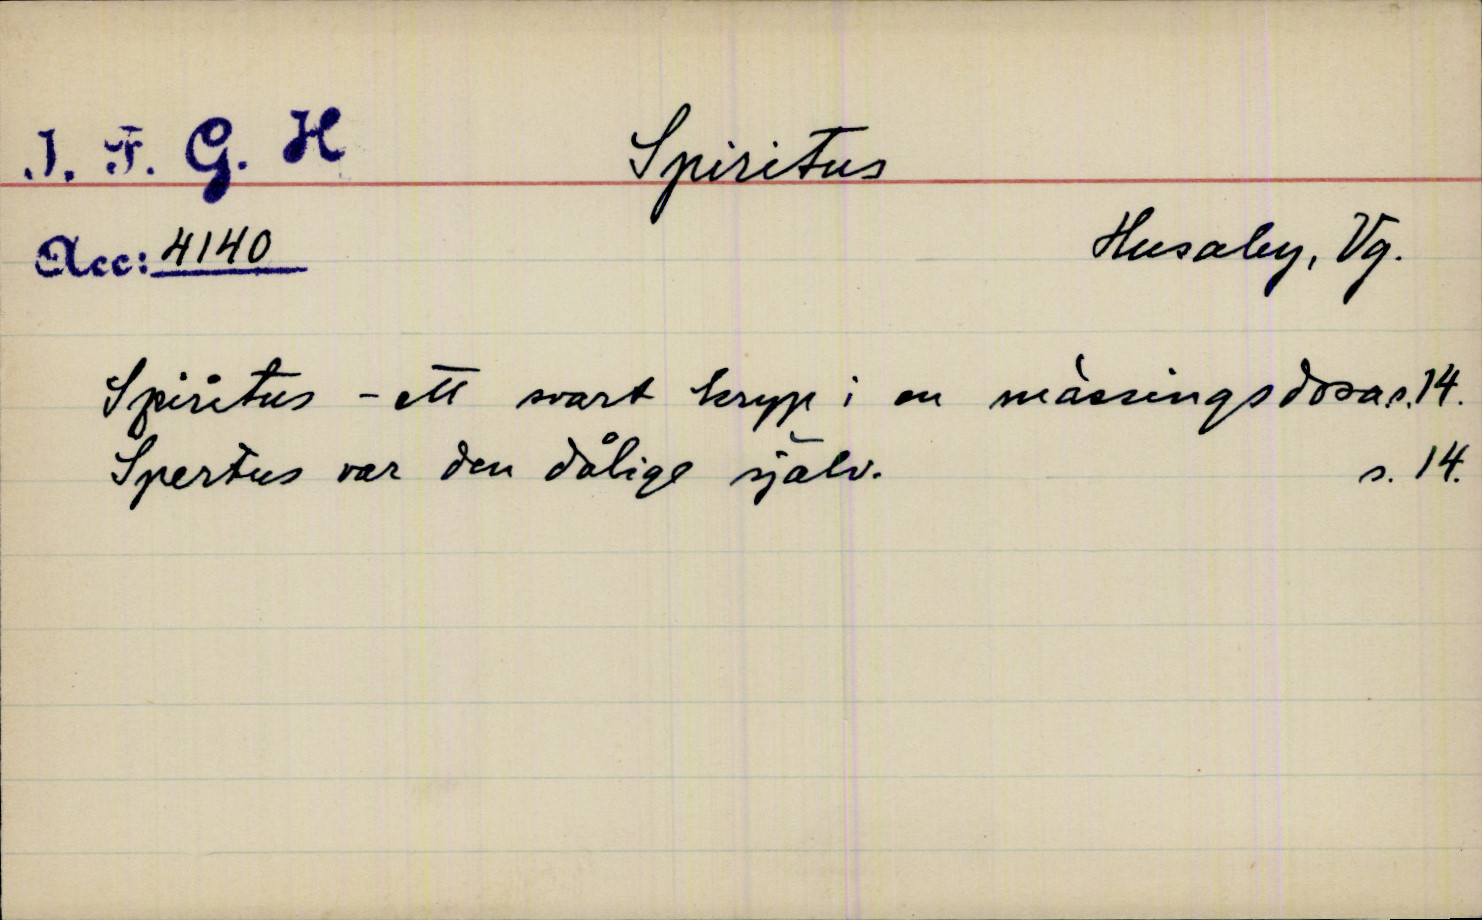 I. F. G. H
Spiritus
Acc: 4140
Husaby, Vg.
Spiritus - ett svart kryp i en mässingsdosa s. 14.
Spertus var den dålige själv. s. 14.